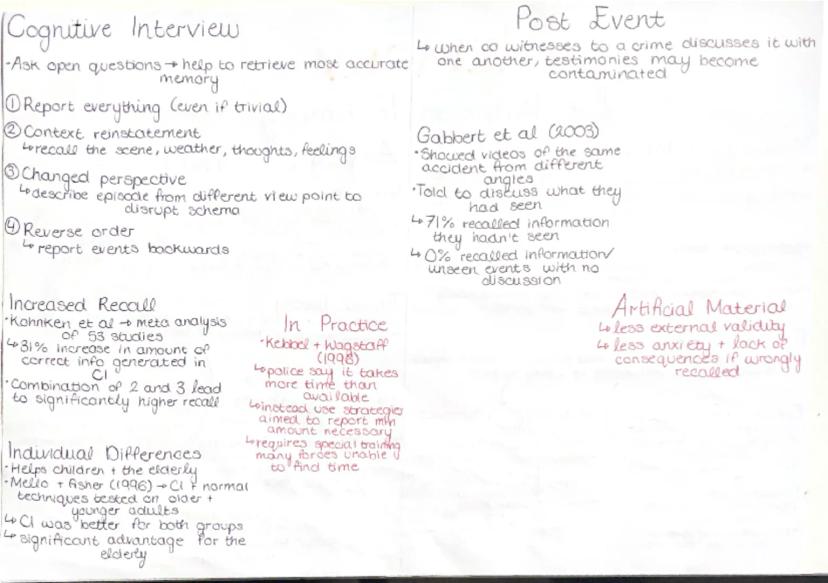 Cognitive Interview
·Ask open questions → help to retrieve most accurate
memory
① Report everything (even if trivial)
② Context reinstatement
↳ recall the scene, weather, thoughts, feelings
③ Changed perspective
↳ describe episode from different view point to
disrupt schema
④ Reverse order
↳ report events backwards
Increased Recall
·Kohnken et al → meta analysis
of 53 studies
↳ 31% increase in amount of
correct info generated in
CI
·Combination of 2 and 3 lead
to significantly higher recall
Individual Differences
·Helps children + the elderly
·Mello + Fisher (1996) → CI + normal
techniques tested on older +
younger adults
↳ CI was better for both groups
↳ significant advantage for the
elderly
In Practice
·Kebbel + Wagstaff
(1998)
↳ police say it takes
more time than
available
↳ instead use strategies
aimed to report min
amount necessary
↳ requires special training
many forces unable
to find time
Post Event
↳ when co witnesses to a crime discusses it with
one another, testimonies may become
contaminated
Gabbert et al (2003)
·Showed videos of the same
accident from different
angles
·Told to discuss what they
had seen
↳ 71% recalled information
they hadn't seen
↳ 0% recalled information/
unseen events with no
discussion
Artificial Material
↳ less external validity
↳ less anxiety + lack of
consequences if wrongly
recalled